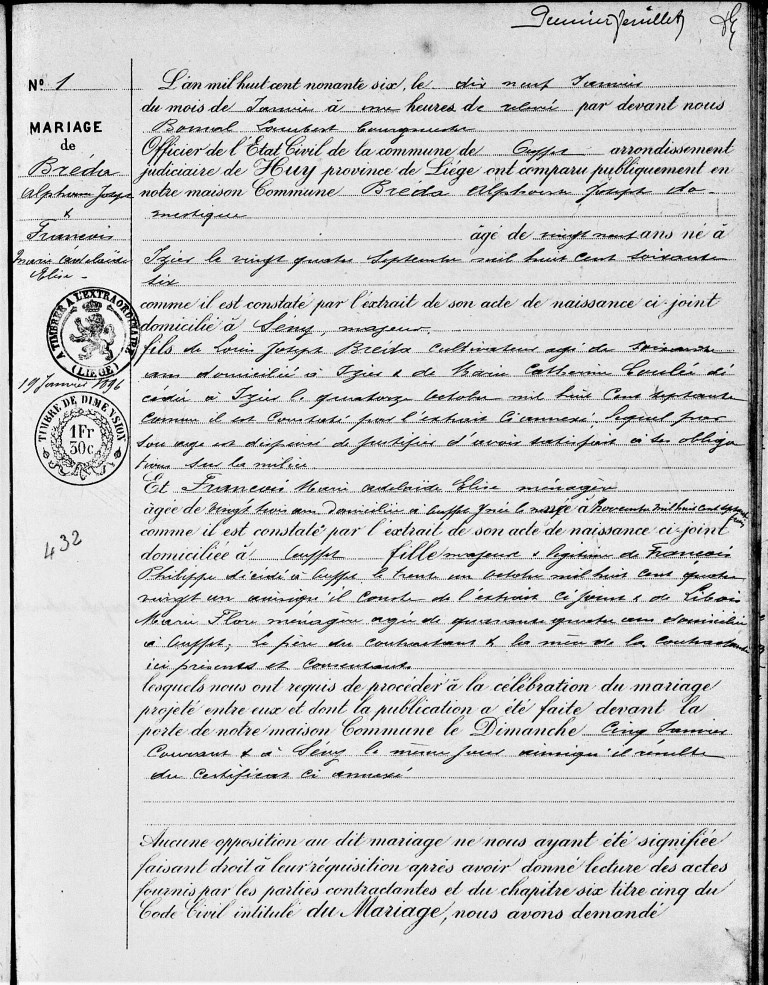 Premier feuillet
Nº 1
MARIAGE
de
Bréda
Alphonse Joseph
&
François
Marie Adelaïde
Elise
A TIMBRER A L'EXTRAORDINAIRE
(LIÉGE)
19 Janvier 1896
TIMBRE DE DIMENSION
1Fr
30c
432
L'an mil huit cent nonante six, le dix neuf Janvier
du mois de Janvier à une heures de relevé par devant nous
Bomal Lambert bourgmestre
Officier de l'Etat Civil de la commune de Ouffet arrondissement
judiciaire de Huy province de Liége ont comparu publiquement en
notre maison Commune Bréda Alphonse Joseph do-
mestique
âgé de vingt neuf ans né à
Izier le vingt quatre Septembre mil huit cent soixante
six
comme il est constaté par l'extrait de son acte de naissance ci-joint
domicilié à Sény, majeur,
fils de Louis Joseph Bréda cultivateur agé de soixante
ans domicilié à Izier & de Marie Catherine dé
cédée à Izier le quatorze octobre mil huit cent septante
comme il est constaté par l'extrait ci annexé, lequel par
son age est dispensé de justifier d'avoir satisfait à ses obliga
tions sur la milice
Et François Marie Adelaïde Elise ménagère
âgée de vingt trois ans domiciliée à Ouffet née à novembre mil huit cent septante
comme il est constaté par l'extrait de son acte de naissance ci-joint
domiciliée à Ouffet fille majeure & légitime de François
Philippe décédé à Ouffet le trente un octobre mil huit cent quatre
vingt un ainsi qu'il conste de l'extrait ci joint & de Libois
Marie Flore ménagère agée de quarante quatre ans domiciliée
à Ouffet; le père du contractant & la mère de la contractante
ici présents et consentants
lesquels nous ont requis de procéder à la célébration du mariage
projeté entre eux et dont la publication a été faite devant la
porte de notre maison Commune le Dimanche cinq Janvier
courant & à Sény le même jour ainsi qu'il résulte
du certificat ci annexé
Aucune opposition au dit mariage ne nous ayant été signifiée
faisant droit à leur réquisition après avoir donné lecture des actes
fournis par les parties contractantes et du chapitre six titre cinq du
Code Civil intitulé du Mariage, nous avons demandé